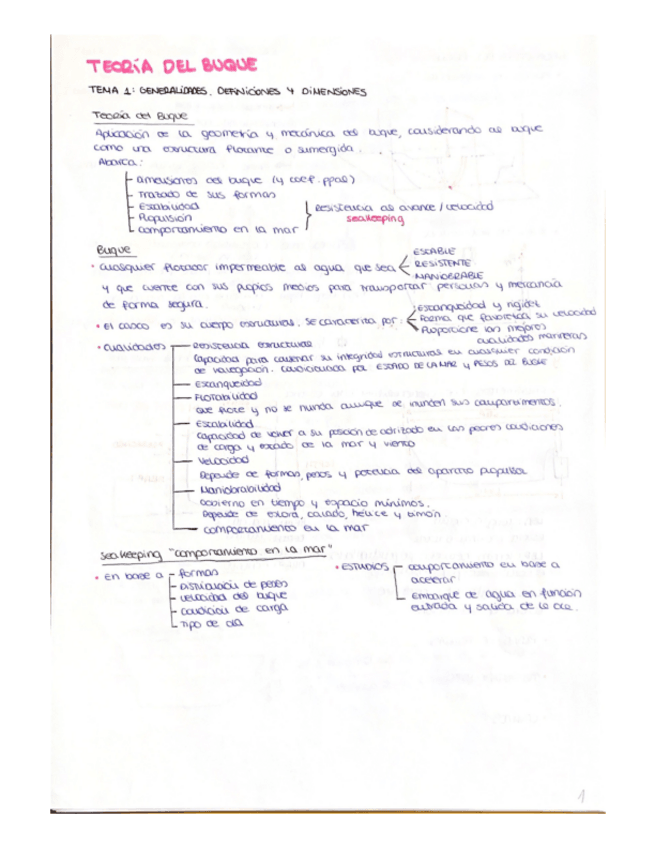 TEORÍA DEL BUQUE
TEMA 1: GENERALIDADES. DEFINICIONES Y DIMENSIONES
Teoría del Buque
Aplicación de la geometría y mecánica del buque, considerando al buque
como una estructura flotante o sumergida.
Abarca:
dimensiones del buque (y coef. ppal)
Trazado de sus formas
Estabilidad
Propulsión
Comportamiento en la mar
Resistencia al avance / velocidad
seakeeping
Buque
• cualquier flotador impermeable al agua que sea
ESTABLE
RESISTENTE
MANIOBRABLE
y que cuente con sus propios medios para transportar personas y mercancía
de forma segura.
• el casco es su cuerpo estructural. Se caracteriza por:
Estanqueidad y rigidez
Forma que favorezca su velocidad
Proporcione las mejores
cualidades marineras
• cualidades
Resistencia estructural
Capacidad para conservar su integridad estructural en cualquier condición
de navegación. Condicionada por ESTADO DE LA MAR y PESOS DEL BUQUE
Estanqueidad
FLOTABILIDAD
que flote y no se hunda aunque se inunden sus compartimentos.
Estabilidad
Capacidad de volver a su posición de adrizado en las peores condiciones
de carga y estado de la mar y viento
Velocidad
Depende de formas, pesos y potencia del aparato propulsor
Maniobrabilidad
Gobierno en tiempo y espacio mínimos.
Depende de eslora, calado, hélice y timón.
comportamiento en la mar
seakeeping "comportamiento en la mar"
• en base a
formas
distribución de pesos
velocidad del buque
condición de carga
Tipo de ola
• ESTUDIOS
comportamiento en base a
acelerar
Embarque de agua en función
entrada y salida de la ola.
1